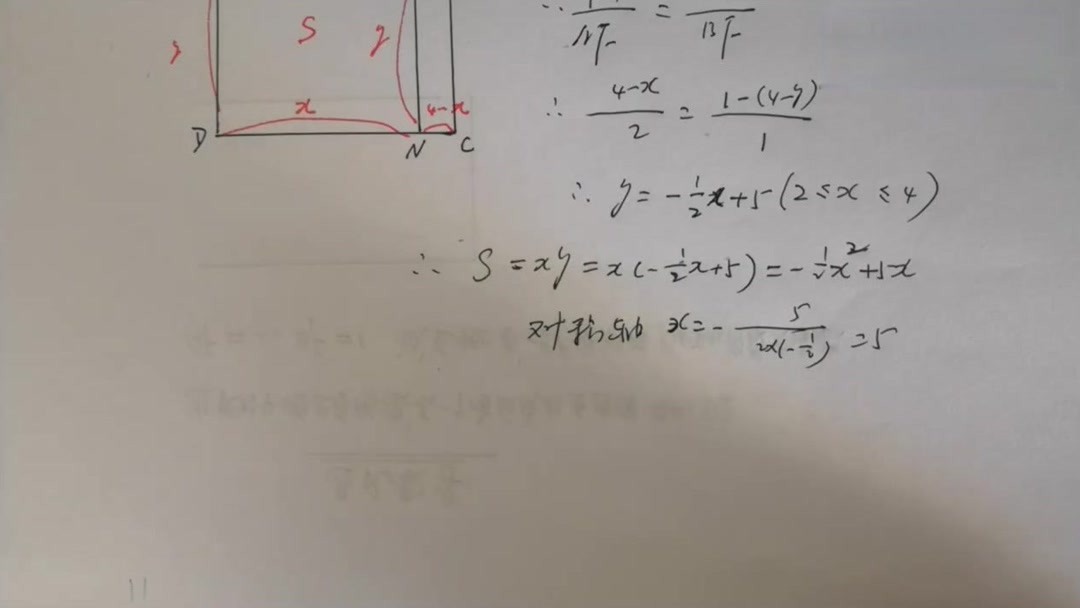 S
y
y
x
4-x
D
N
C
∴ /AF = /BF
∴ (4-x)/2 = (1-(4-y))/1
∴ y = -1/2x+5 (2≤x≤4)
∴ S = xy = x(-1/2x+5) = -1/2x²+5x
对称轴 x = -5/(2×(-1/2)) = 5